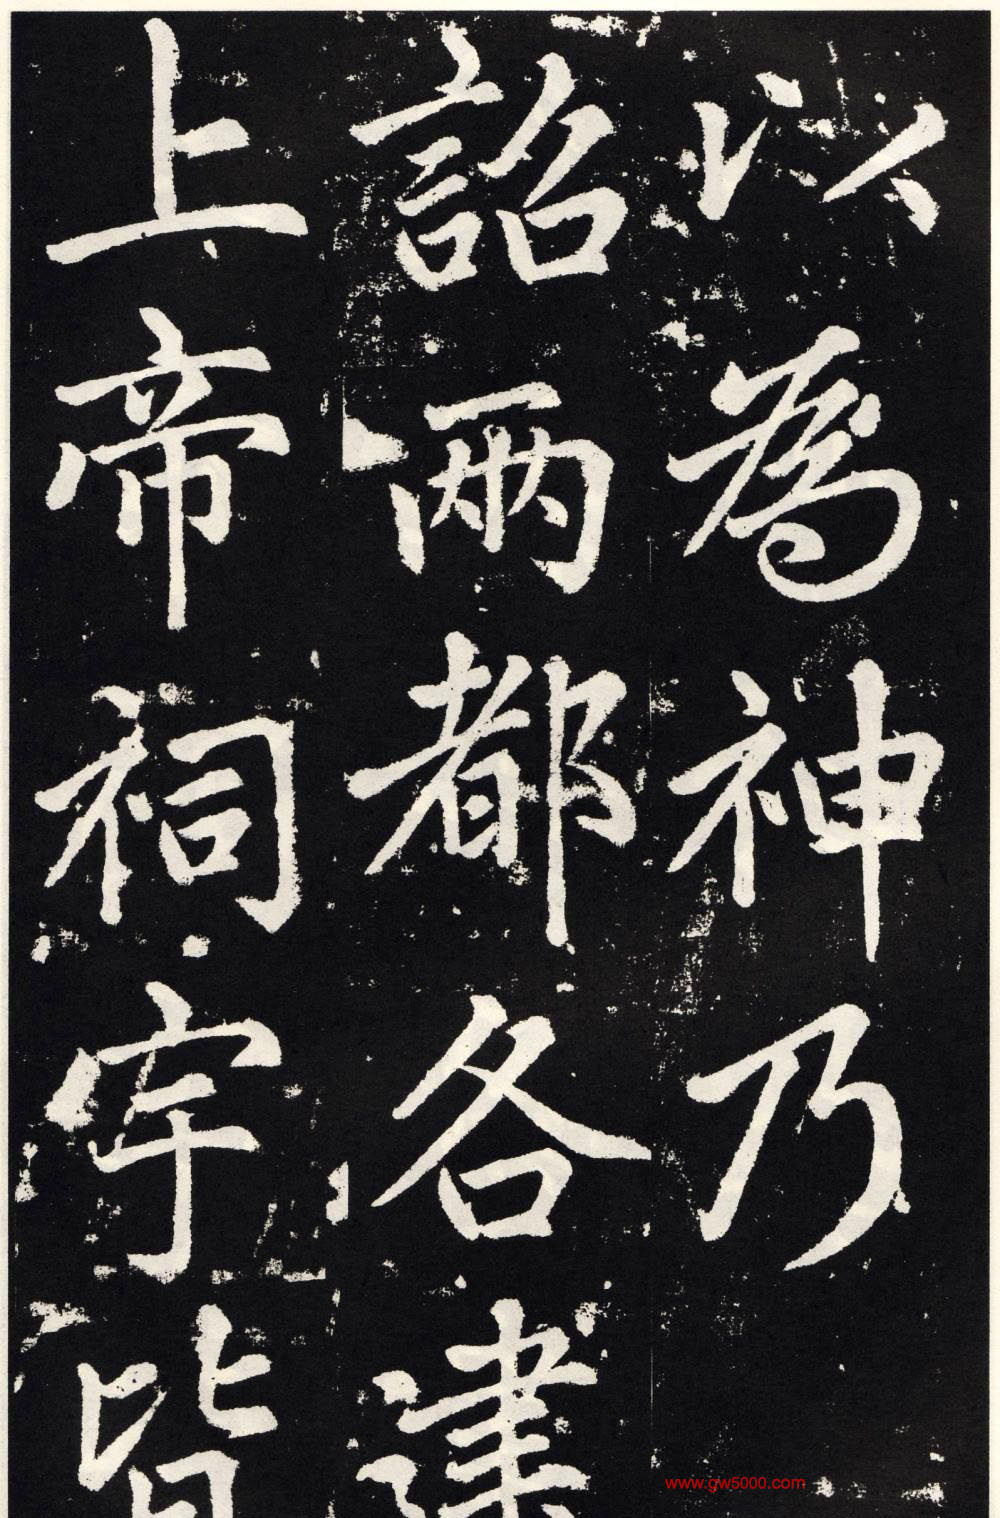 以為神乃
詔兩都各建
上帝祠宇皆
www.gw5000.com